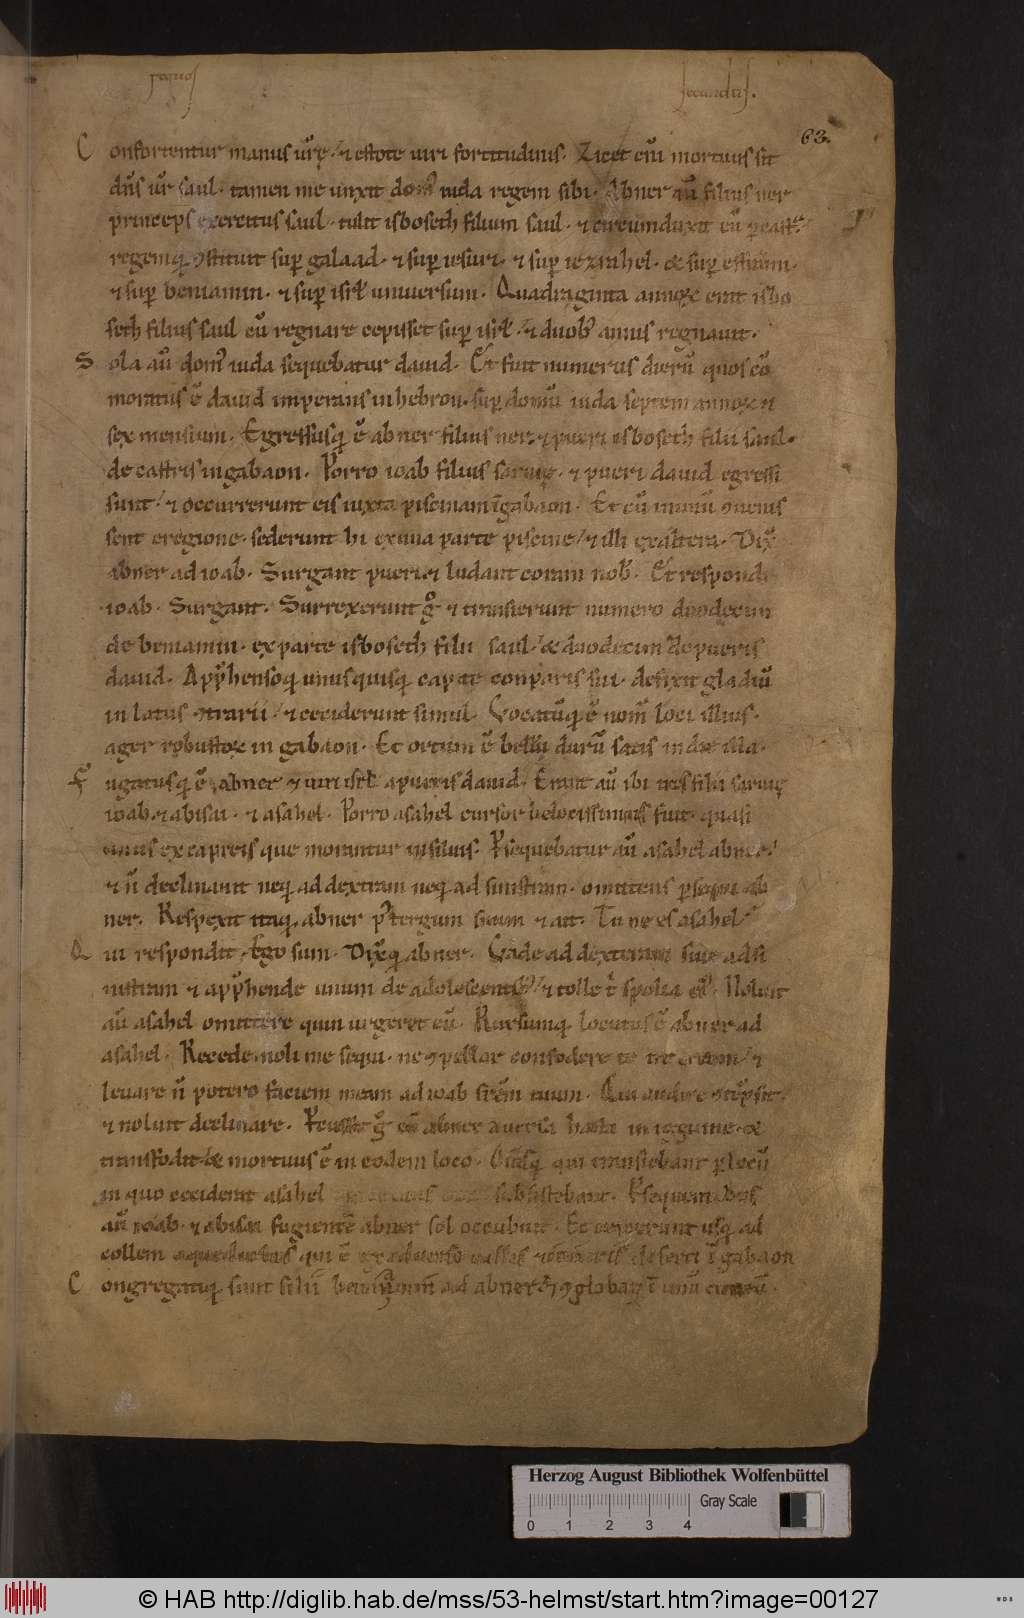 secundus.
63.
Confortentur manus ur̄ę. ⁊ estote uiri fortitudinis. Licet eni̅ mortuus sit
dn̅s ur̄ saul. tamen me unxit dom᷒ iuda regem sibi. Abner au̅ filius ner
princeps exercitus saul. tulit isboseth filium saul. ⁊ circumduxit eu̅ p castr̄a
regemq; ꝯstituit sup galaad. ⁊ sup iesuri. ⁊ sup iezrahel. & sup effraim.
⁊ sup beniamin. ⁊ sup isrl̅ uniuersum. Quadraginta annoꝝ erat isbo
seth filius saul cu̅ regnare cepisset sup isrl̅. ⁊ duob᷒ annis regnauit.
Sola au̅ dom᷒ iuda sequebatur dauid. Et fuit numerus dieru̅ quos co̅
moratus e̅ dauid imperans in hebron. sup domu̅ iuda septem annoꝝ ⁊
sex mensium. Egressusq; e̅ abner filius ner. ⁊ pueri isboseth filii saul.
de castris in gabaon. Porro ioab filius saruię. ⁊ pueri dauid egressi
sunt. ⁊ occurrerunt eis iuxta piscinam i̅ gabaon. Et cu̅ in unu̅ ꝯuenis
sent eregione. sederunt hi ex una parte piscine. ⁊ illi ex altera. Dix̄
abner ad ioab. Surgant pueri ⁊ ludant coram nob̅. Et respondit
ioab. Surgant. Surrexerunt gͦ ⁊ transierunt numero duodecim
de beniamin. ex parte isboseth filii saul. & duodecim de pueris
dauid. App̅hensoq; unusquisq; capite comparis sui. defixit gladiu̅
in latus ꝯtrarii. ⁊ ceciderunt simul. Vocatu̅q; e̅ nom̅ loci illius.
ager robustoꝝ in gabaon. Et ortum e̅ bellu̅ duru̅ satis in die illa.
Fugatusq; e̅ abner ⁊ uiri isrl̅ a pueris dauid. Erant au̅ ibi tres filii saruię
ioab. ⁊ abisai. ⁊ asahel. Porro asahel cursor uelocissimus fuit. quasi
unus ex capreis que morantur in siluis. Psequebatur au̅ asahel abner.
⁊ n̅ declinauit neq; ad dextram neq; ad sinistram. omittens psequi ab
ner. Respexit itaq; abner p᷒t tergum suum ⁊ ait. Tu ne es asahel?
Qui respondit. Ego sum. Dix̄q; abner. Vade ad dexteram siue ad si
nistram ⁊ app̅hende unum de adolescentib᷒. ⁊ tolle t̅ spolia ei᷒. Noluit
au̅ asahel omittere quin urgeret eu̅. Rursumq; locutus e̅ abner ad
asahel. Recede noli me sequi. ne ꝯpellar confodere te in terram. ⁊
leuare n̅ potero faciem meam ad ioab fr̅em tuum. Qui audire ꝯte̅psit.
⁊ noluit declinare. Percussit gͦ eu̅ abner auersa hasta in inguine. &
transfodit. & mortuus e̅ in eodem loco. Om̅sq; qui transiebant p locu̅
in quo ceciderat asahel subsistebant. Psequentib᷒
au̅ ioab. ⁊ abisai fugiente̅ abner sol occubuit. Et uenerunt usq; ad
collem aqueductus qui e̅ ex aduerso deserti i̅ gabaon
Congregatiq; sunt filii beniamin ad abner. ⁊ ꝯglobati i̅ unu̅ cuneu̅.
Herzog August Bibliothek Wolfenbüttel
Gray Scale
0 1 2 3 4
© HAB http://diglib.hab.de/mss/53-helmst/start.htm?image=00127